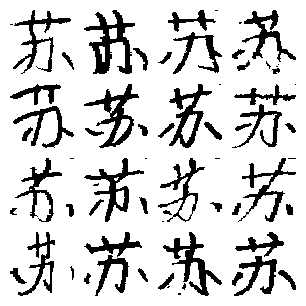 苏苏苏苏
苏苏苏苏
苏苏苏苏
苏苏苏苏